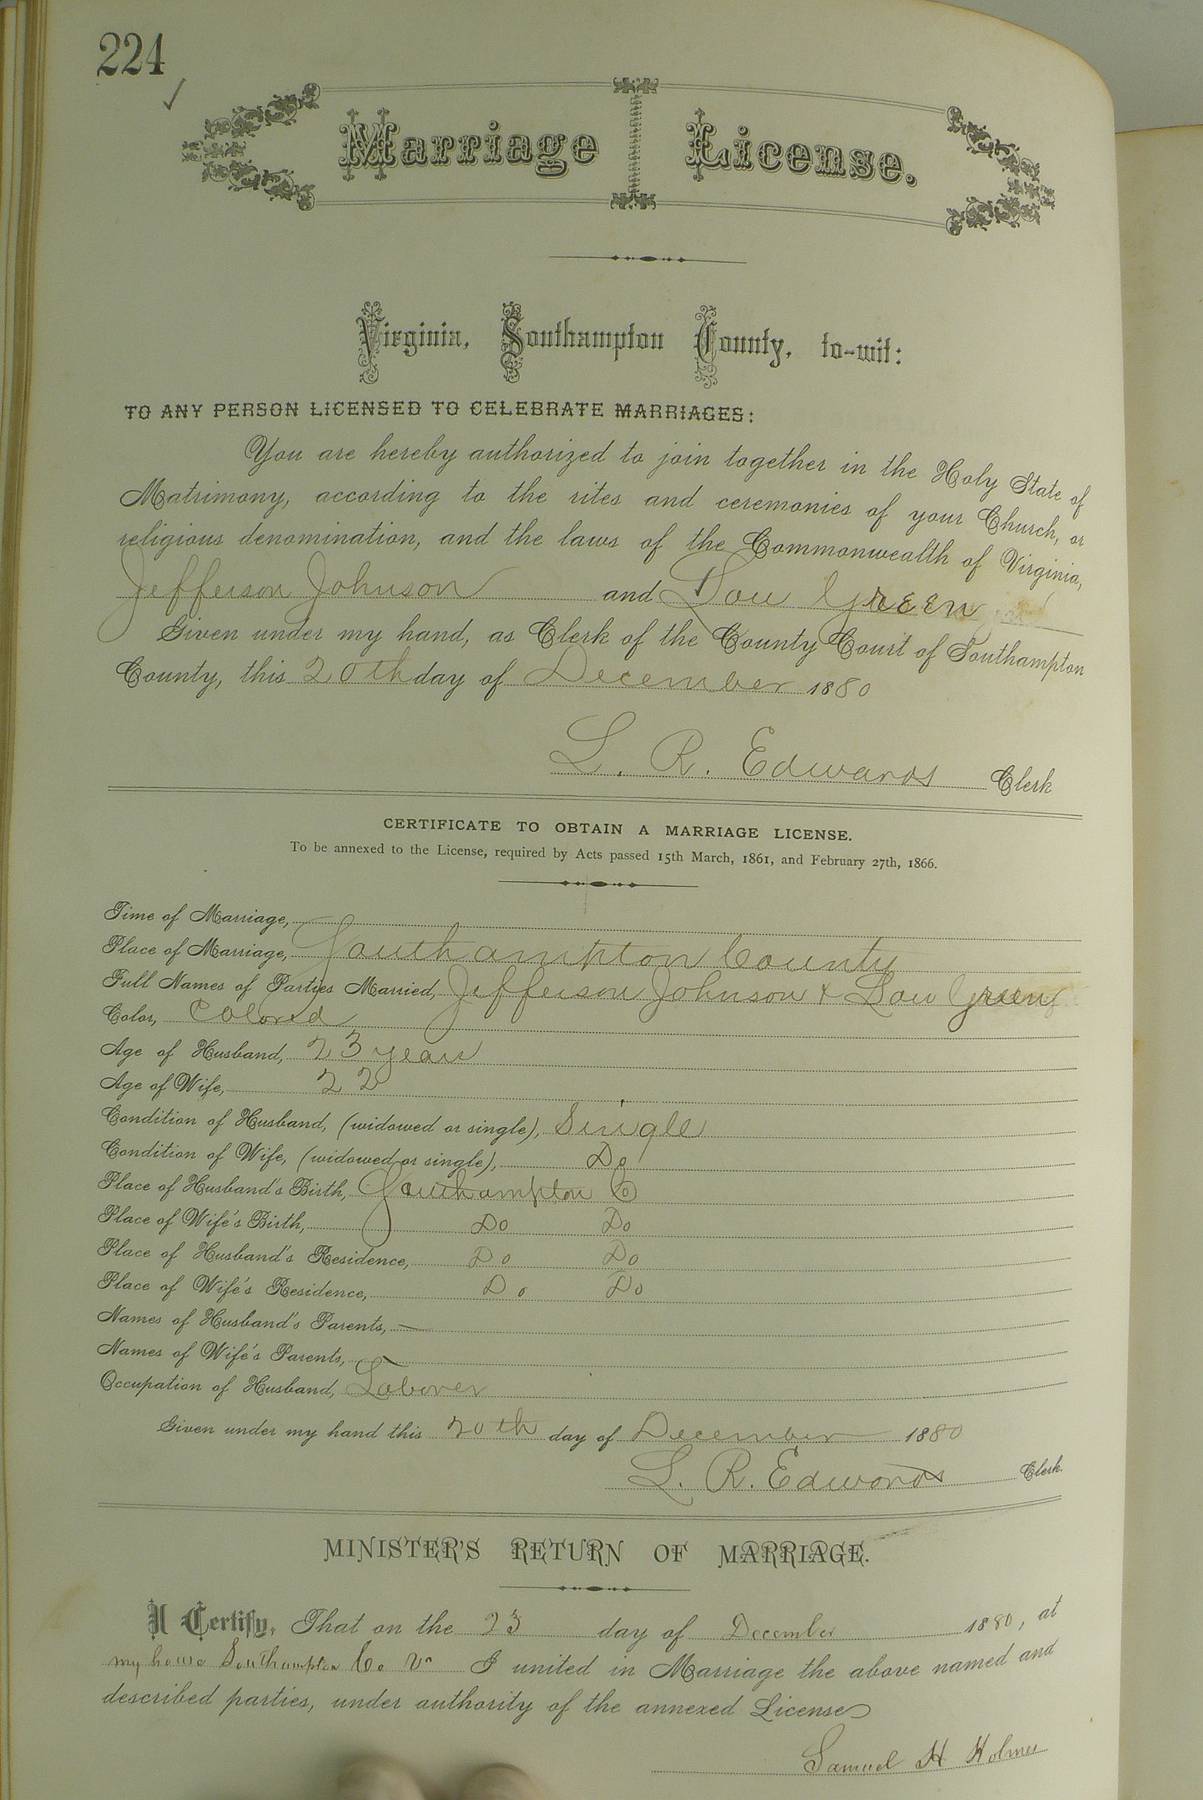 224
Marriage License.
Virginia, Southampton County, to-wit:
TO ANY PERSON LICENSED TO CELEBRATE MARRIAGES:
You are hereby authorized to join together in the Holy State of
Matrimony, according to the rites and ceremonies of your Church, or
religious denomination, and the laws of the Commonwealth of Virginia,
Jefferson Johnson and Lou Green
Given under my hand, as Clerk of the County Court of Southampton
County, this 20th day of December 1880
L. R. Edwards Clerk
CERTIFICATE TO OBTAIN A MARRIAGE LICENSE.
To be annexed to the License, required by Acts passed 15th March, 1861, and February 27th, 1866.
Time of Marriage,
Place of Marriage, Southampton County
Full Names of Parties Married, Jefferson Johnson & Lou Green
Color, Colored
Age of Husband, 23 years
Age of Wife, 22
Condition of Husband, (widowed or single), Single
Condition of Wife, (widowed or single), Do
Place of Husband's Birth, Southampton Co
Place of Wife's Birth, Do Do
Place of Husband's Residence, Do Do
Place of Wife's Residence, Do Do
Names of Husband's Parents, —
Names of Wife's Parents, —
Occupation of Husband, Laborer
Given under my hand this 20th day of December 1880
L. R. Edwards Clerk.
MINISTER'S RETURN OF MARRIAGE.
I Certify, That on the 23 day of December 1880, at
my house Southampton Co Va I united in Marriage the above named and
described parties, under authority of the annexed License
Samuel H Holmes